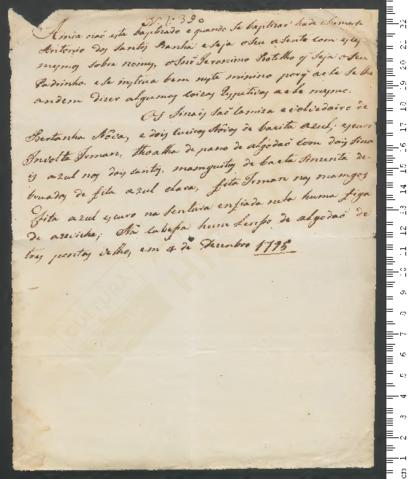 N. 1:390
Ainda naõ esta baptizado e quando se baptizar hade chamarse
Antonio dos Santos Banha e seja o seu asento com esses
mesmos sobre nomes, o Snr Jeronimo Botelho q seja o seu
Padrinho e se instrua bem neste minino porq a elle se lhe
andem dizer algumas coizas Respetivas a elle mesmo.
Os Sinais Saõ Camiza e de
Bertanha Nova, e dois Novos de baeta azul, escuro
Involta Irman, thoalha de pano de algodaõ com dois
azul nos dois cantos, manguitos de baeta Sinzenta de
bruados de fita azul clara, fita Irman nas mangas
fita azul escuro na Sentura enfiada nella huma figa
de azeviche; Na cabesa hum Lenso de algodaõ de
tres pontas velho, em 4 de Dezenbro 1795